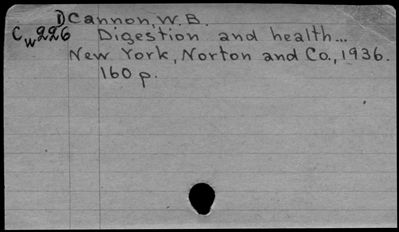 DCannon, W.B.
Cw226 Digestion and health...
New York, Norton and Co., 1936.
160 p.